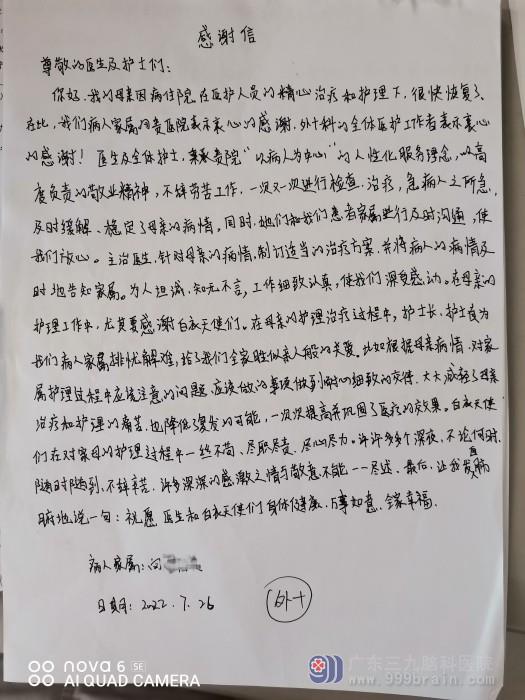 感谢信
尊敬的医生及护士们：
你好，我的母亲因病住院，在医护人员的精心治疗和护理下，很快恢复了，
在此，我们病人家属向贵医院表示衷心的感谢，外十科的全体医护工作者表示衷心
的感谢！医生及全体护士，秉承贵院"以病人为中心"的人性化服务理念，以高
度负责的敬业精神，不辞劳苦工作，一次又一次进行检查、治疗，急病人之所急，
及时缓解、稳定了母亲的病情。同时，她们和我们患者家属进行及时沟通，使
我们放心。主治医生，针对母亲的病情，制订适当的治疗方案，并将病人的病情及
时地告知家属。为人坦诚，知无不言，工作细致认真，使我们深受感动。在母亲的
护理工作中，尤其要感谢白衣天使们。在母亲的护理治疗过程中，护士长、护士首为
我们病人家属排忧解难，给了我们全家胜似亲人般的关爱。比如根据母亲病情，对家
属护理过程中应该注意的问题，应该做的事项做到耐心细致的交待，大大减轻了母亲
治疗和护理的痛苦，也降低了复发的可能，一次次提高并巩固了医疗的效果。白衣天使
们在对家母的护理过程中一丝不苟、尽职尽责、尽心尽力。许许多多个深夜，不论何时，
随时随到，不辞辛苦。许多深深的感激之情与敬意不能一一尽述、最后，让我发自肺
腑地说一句：祝愿医生和白衣天使们身体健康、万事如意、全家幸福。
病人家属：向
日期：2022.7.26
外十
nova 6 SE
AI QUAD CAMERA
广东三九脑科医院
www.999brain.com